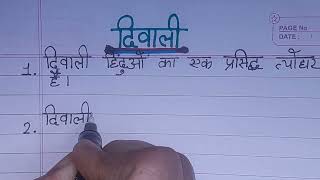 PAGE No.
DATE:
दिवाली
1. दिवाली हिंदुओं का एक प्रसिद्ध त्योहार
है।
2. दिवाली